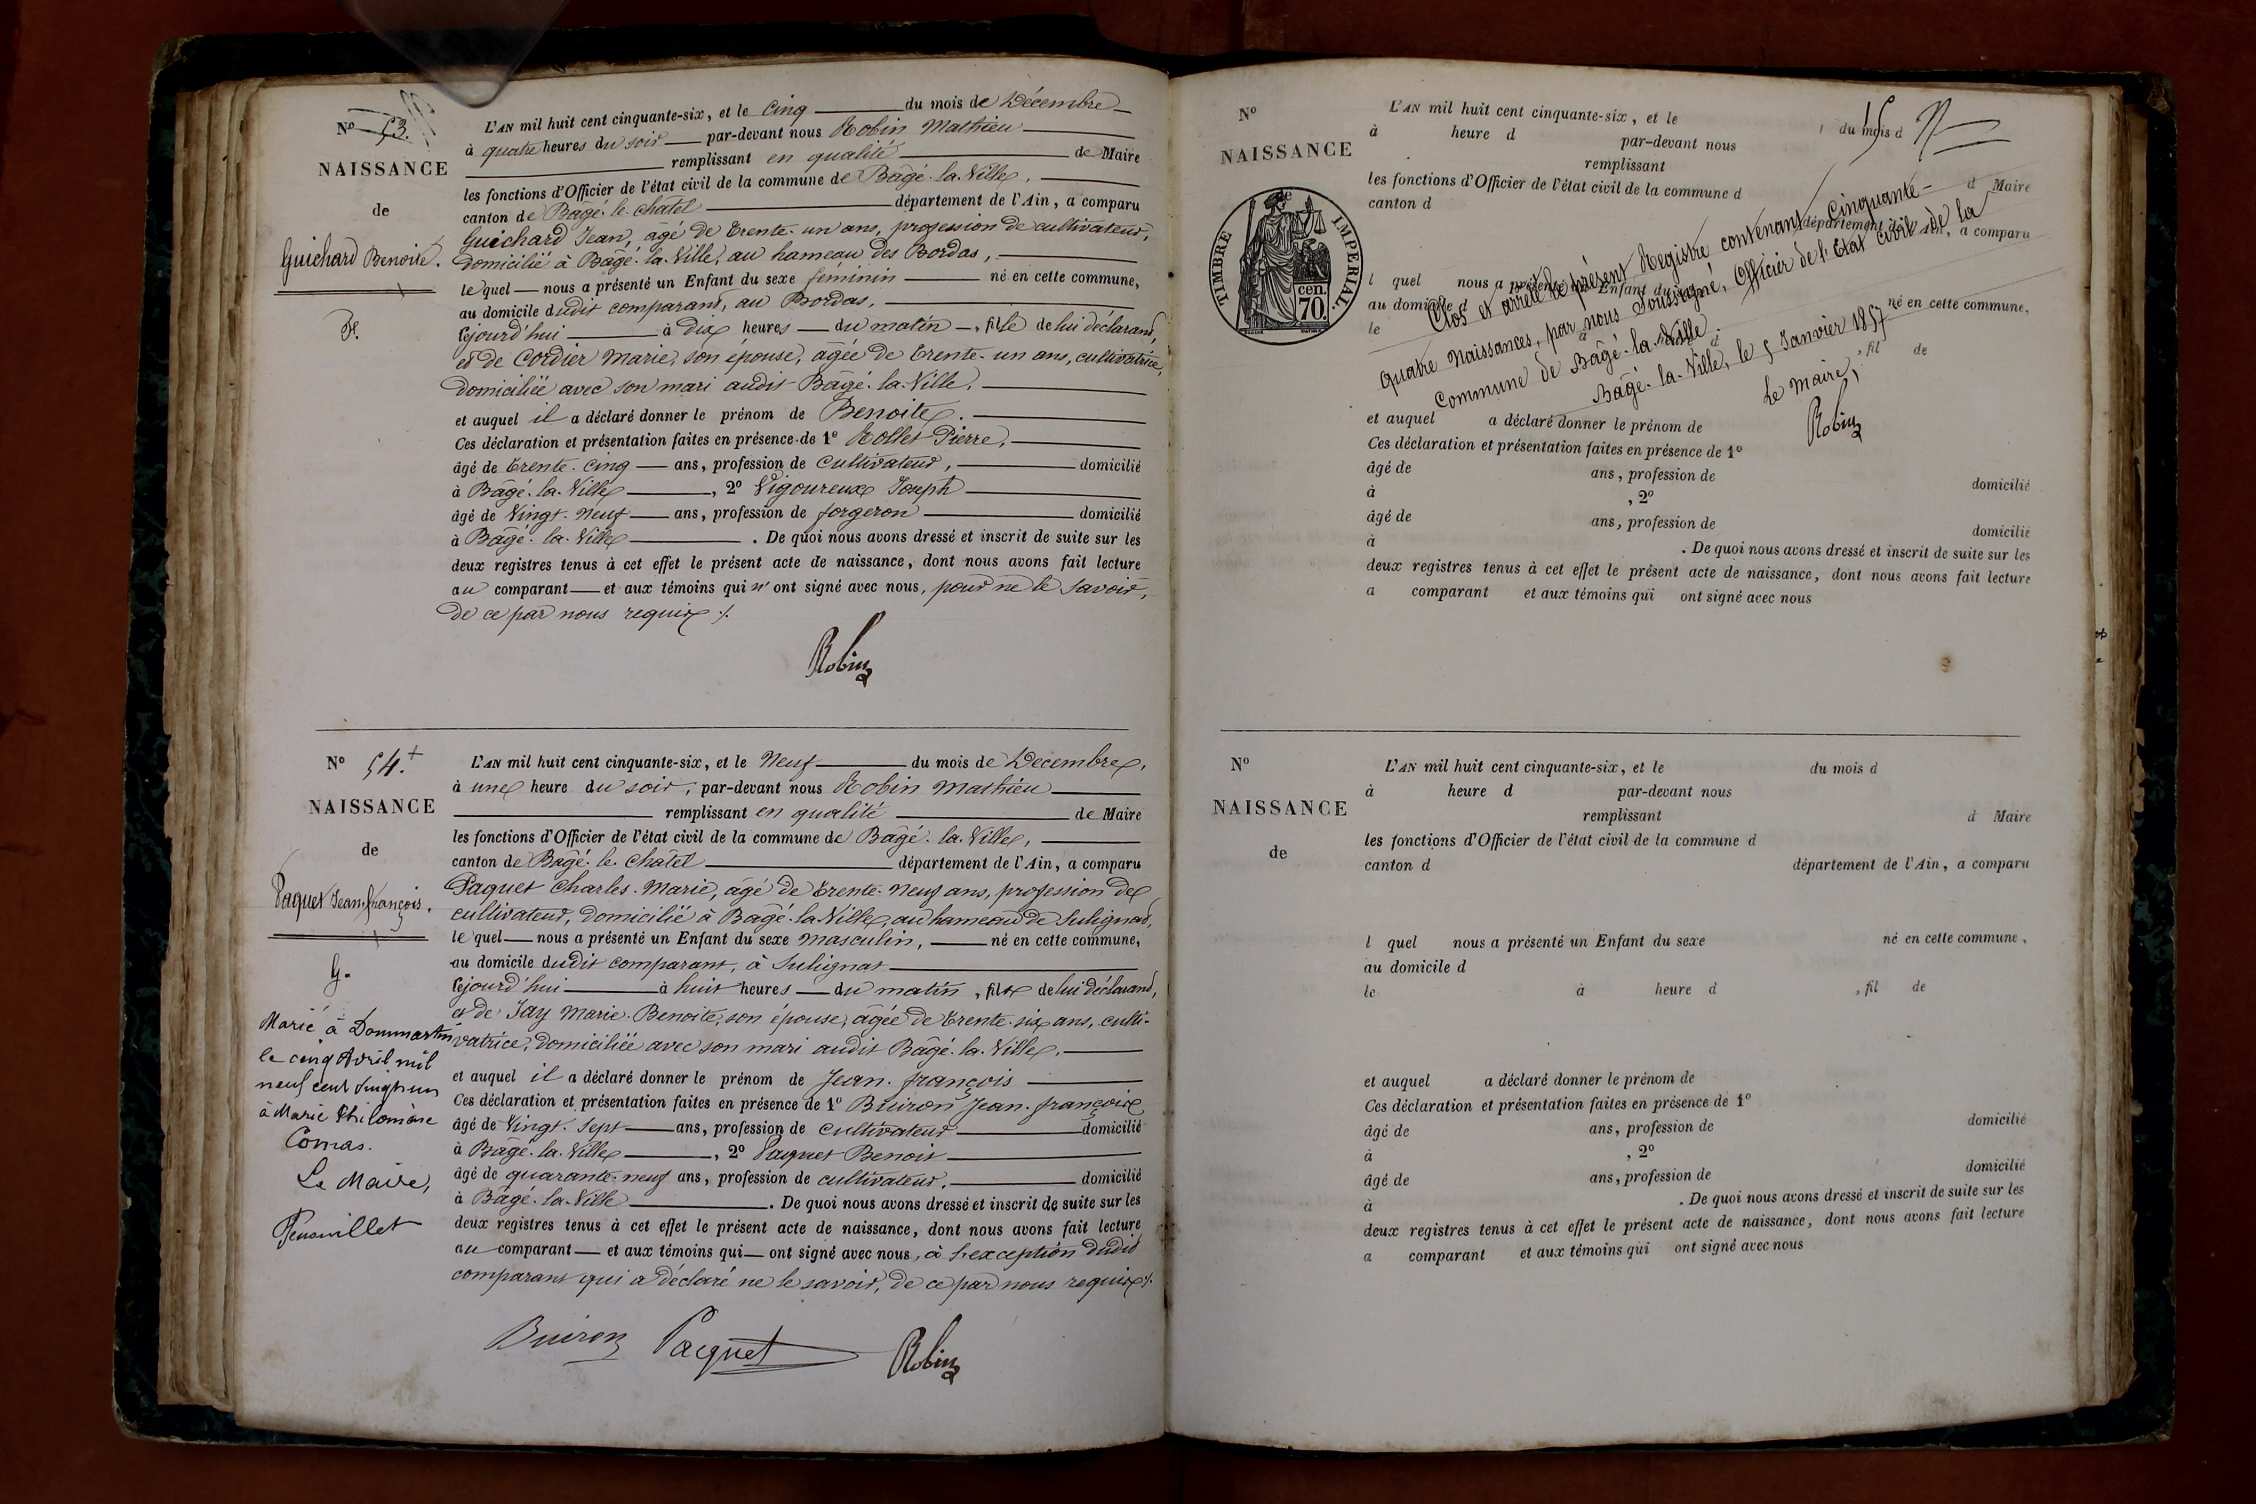 N° 53.
NAISSANCE
de
Guichard Benoite.
F.
L'AN mil huit cent cinquante-six, et le cinq du mois de Décembre
à quatre heures du soir par-devant nous Robin Mathieu
remplissant en qualité de Maire
les fonctions d'Officier de l'état civil de la commune de Bâgé-la-Ville,
canton de Bâgé-le-Chatel département de l'Ain, a comparu
Guichard Jean, âgé de trente-un ans, profession de cultivateur,
domicilié à Bâgé-la-Ville, au hameau des Bordas,
lequel nous a présenté un Enfant du sexe féminin né en cette commune,
au domicile dudit comparant, au Bordas,
cejourd'hui à dix heures du matin, fille de lui déclarant,
et de Cordier Marie, son épouse, âgée de trente-un ans, cultivatrice,
domiciliée avec son mari audit Bâgé-la-Ville,
et auquel il a déclaré donner le prénom de Benoite.
Ces déclaration et présentation faites en présence de 1° Rollet Pierre,
âgé de trente-cinq ans, profession de cultivateur, domicilié
à Bâgé-la-Ville, 2° Vigoureux Joseph
âgé de vingt-neuf ans, profession de forgeron domicilié
à Bâgé-la-Ville. De quoi nous avons dressé et inscrit de suite sur les
deux registres tenus à cet effet le présent acte de naissance, dont nous avons fait lecture
au comparant et aux témoins qui n'ont signé avec nous, pour ne le savoir,
de ce par nous requis ./.
Robin
N° 54.+
NAISSANCE
de
Paquet Jean-françois.
G.
Marié à Dommartin
le cinq Avril mil
neuf cent vingt-un
à Marie Philomène
Comas.
Le Maire,
L'AN mil huit cent cinquante-six, et le Neuf du mois de Décembre,
à une heure du soir, par-devant nous Robin Mathieu
remplissant en qualité de Maire
les fonctions d'Officier de l'état civil de la commune de Bâgé-la-Ville,
canton de Bâgé-le-Chatel département de l'Ain, a comparu
Paquet Charles-Marie, âgé de trente-neuf ans, profession de
cultivateur, domicilié à Bâgé-la-Ville, au hameau de Sulignat,
lequel nous a présenté un Enfant du sexe masculin, né en cette commune,
au domicile dudit comparant, à Sulignat
cejourd'hui à huit heures du matin, fils de lui déclarant,
et de Jay Marie-Benoite, son épouse, âgée de trente-six ans, culti-
vatrice, domiciliée avec son mari audit Bâgé-la-Ville,
et auquel il a déclaré donner le prénom de Jean-françois
Ces déclaration et présentation faites en présence de 1° Buiron Jean-françois
âgé de vingt-sept ans, profession de cultivateur domicilié
à Bâgé-la-Ville, 2° Paquet Benoit
âgé de quarante-neuf ans, profession de cultivateur, domicilié
à Bâgé-la-Ville. De quoi nous avons dressé et inscrit de suite sur les
deux registres tenus à cet effet le présent acte de naissance, dont nous avons fait lecture
au comparant et aux témoins qui ont signé avec nous, à l'exception dudit
comparant qui a déclaré ne le savoir, de ce par nous requis ./.
Buiron Pacquet Robin
N°
NAISSANCE
TIMBRE IMPERIAL.
cen.
70.
L'AN mil huit cent cinquante-six, et le du mois d
à heure d par-devant nous
remplissant d Maire
les fonctions d'Officier de l'état civil de la commune d
canton d département de l'Ain, a comparu
l quel nous a présenté un Enfant du sexe né en cette commune,
au domicile d
le à heure d , fil de
Clos et arrêté le présent Registre contenant cinquante-
quatre Naissances, par nous soussigné, Officier de l'Etat civil de la
Commune de Bâgé-la-Ville.
Bâgé-la-Ville, le 5 Janvier 1857
Le Maire,
Robin
et auquel a déclaré donner le prénom de
Ces déclaration et présentation faites en présence de 1°
âgé de ans, profession de domicilié
à , 2°
âgé de ans, profession de domicilié
à . De quoi nous avons dressé et inscrit de suite sur les
deux registres tenus à cet effet le présent acte de naissance, dont nous avons fait lecture
a comparant et aux témoins qui ont signé avec nous
N°
NAISSANCE
de
L'AN mil huit cent cinquante-six, et le du mois d
à heure d par-devant nous
remplissant d Maire
les fonctions d'Officier de l'état civil de la commune d
canton d département de l'Ain, a comparu
l quel nous a présenté un Enfant du sexe né en cette commune,
au domicile d
le à heure d , fil de
et auquel a déclaré donner le prénom de
Ces déclaration et présentation faites en présence de 1°
âgé de ans, profession de domicilié
à , 2°
âgé de ans, profession de domicilié
à . De quoi nous avons dressé et inscrit de suite sur les
deux registres tenus à cet effet le présent acte de naissance, dont nous avons fait lecture
a comparant et aux témoins qui ont signé avec nous